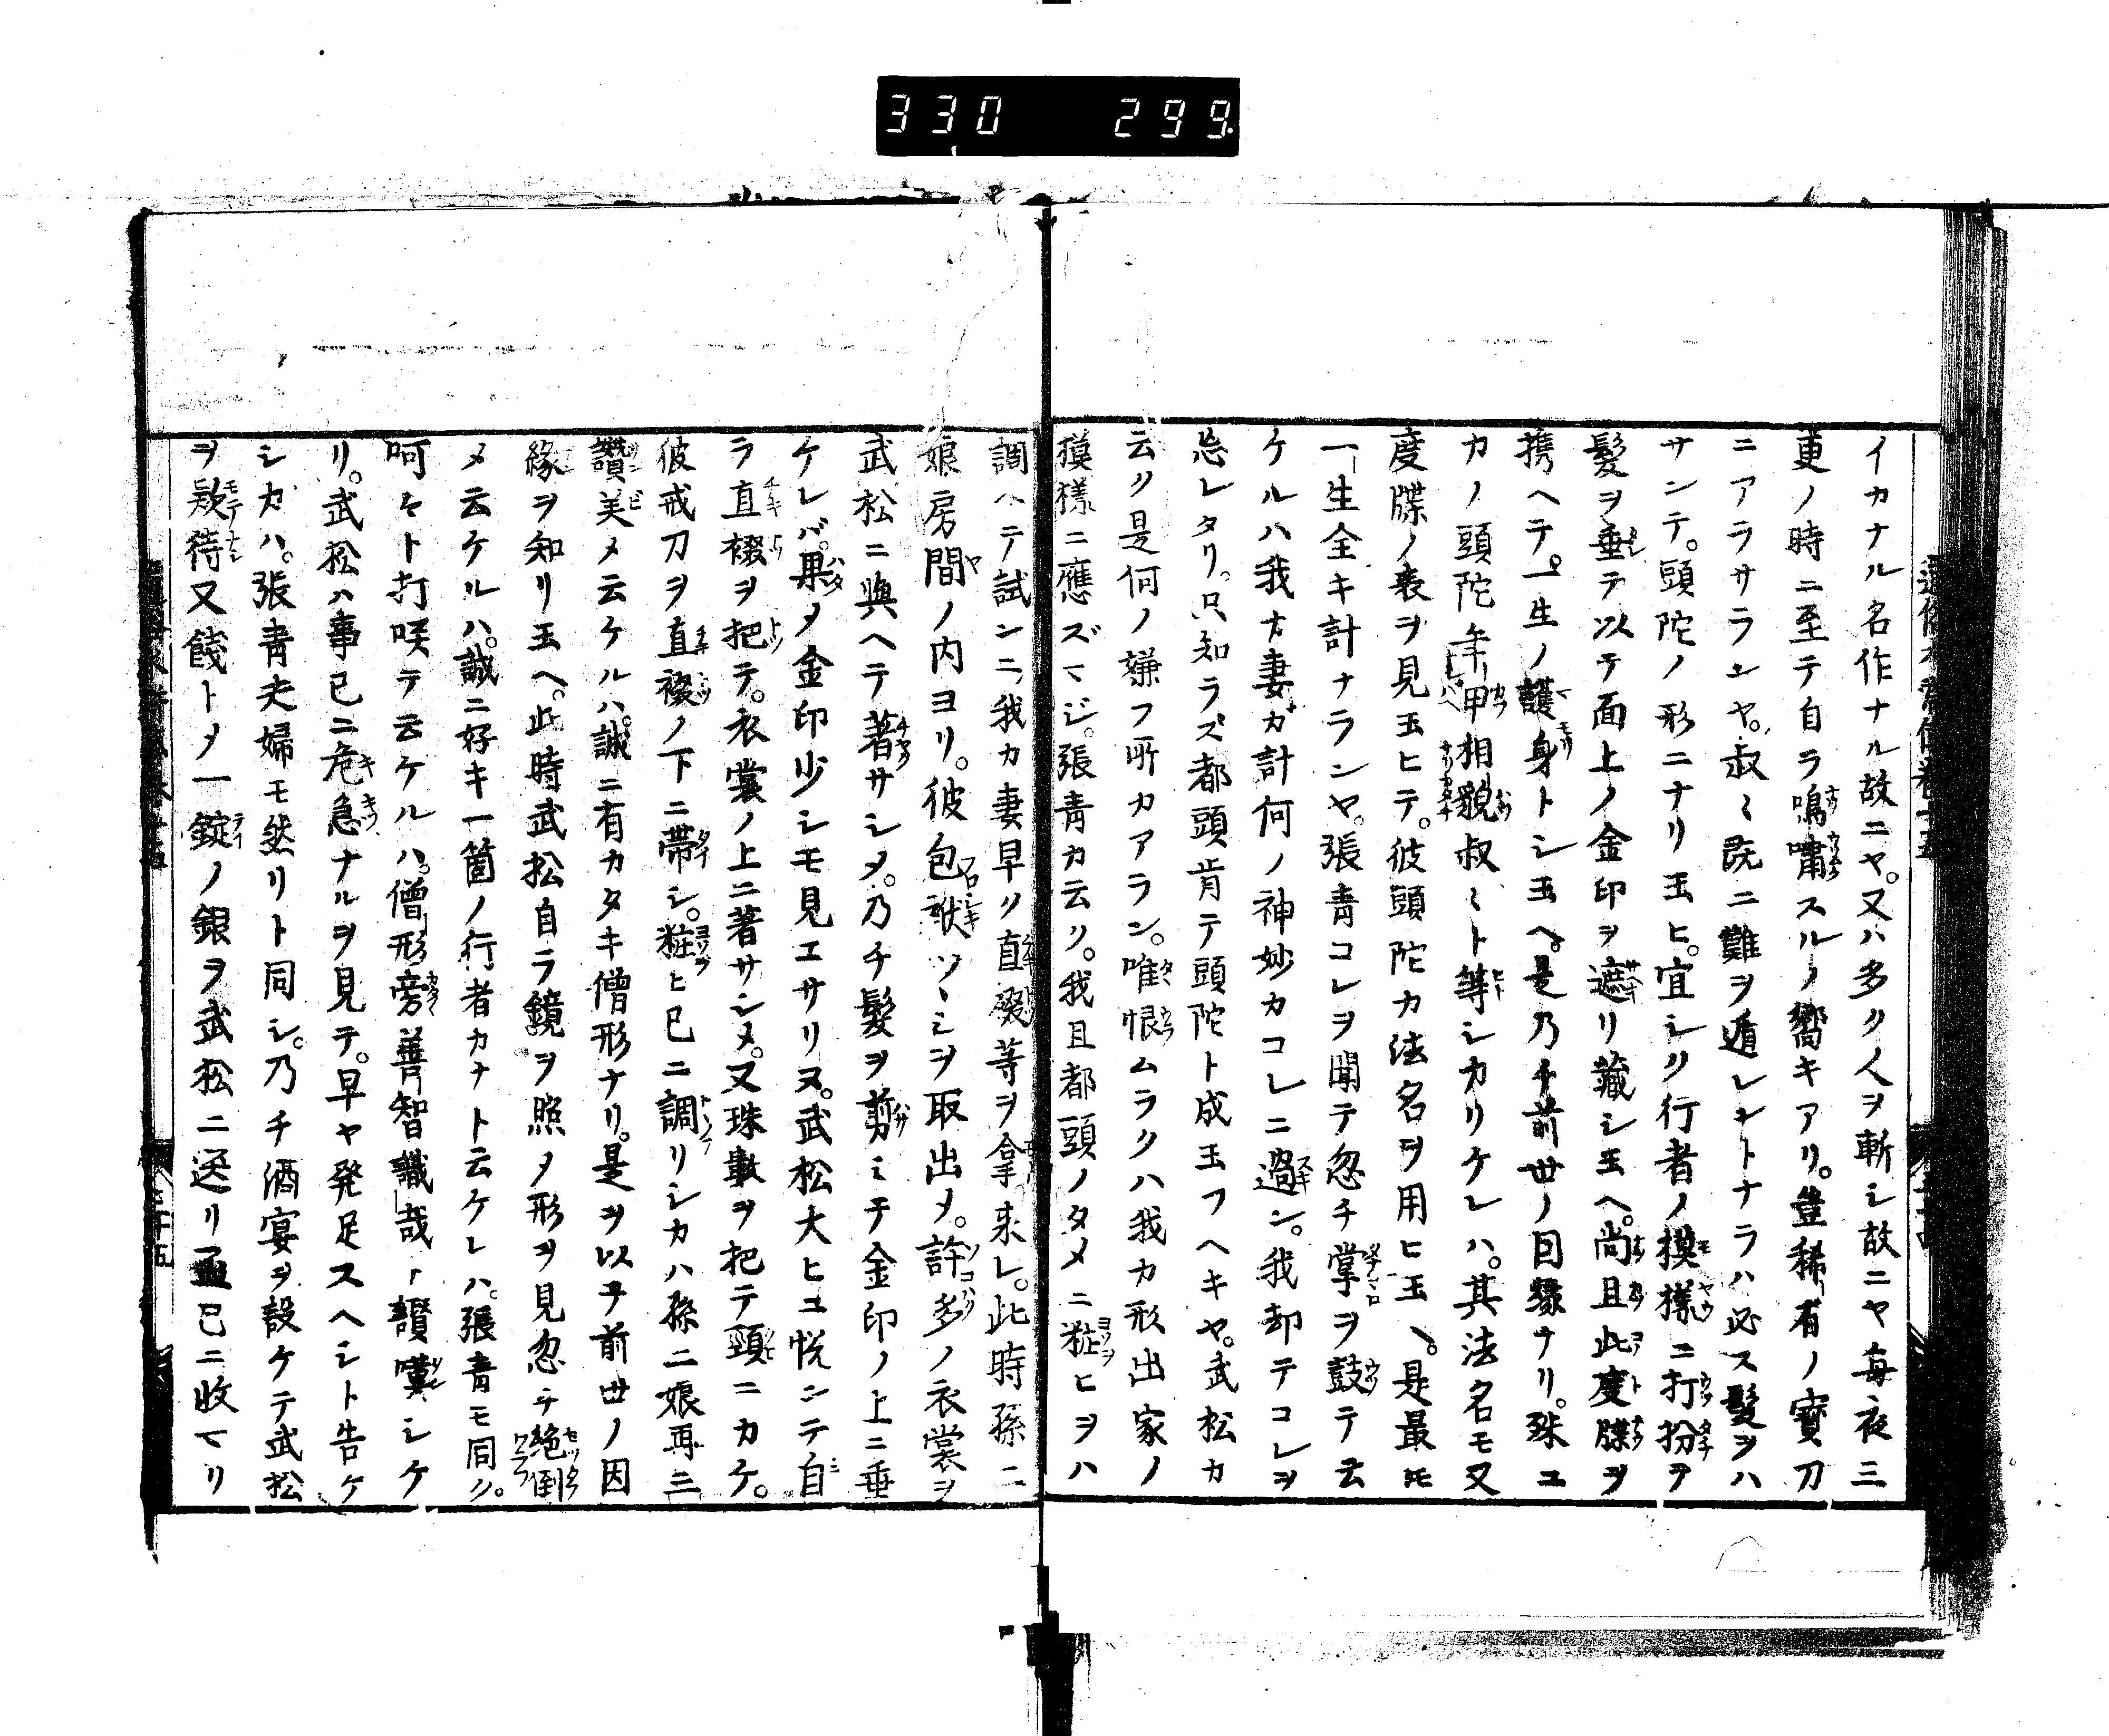 330 299
イカナル名作ナル故ニヤ。又ハ多ク人ヲ斬シ故ニヤ毎夜三
更ノ時ニ至テ自ラ鳴嘯スルノ響キアリ。豈稀有ノ寳刀
ニアラサランヤ。叔〻既ニ難ヲ遁レントナラハ必ス髮ヲハ
サンテ。頭陀ノ形ニナリ玉ヒ。宜シク行者ノ摸樣ニ打扮テ
髮ヲ垂テ以テ面上ノ金印ヲ遮リ藏シ玉ヘ。尚且此度牒ヲ
携ヘテ。一生ノ護身トシ玉ヘ。是乃チ前世ノ因縁ナリ。殊ニ
カノ頭陀年甲相貌叔〻ト等シカリケレハ。其法名モ又
度牒ノ表ヲ見玉ヒテ。彼頭陀カ法名ヲ用ヒ玉ヘ。是最モ
一生全キ計ナランヤ。張青コレヲ聞テ忽チ掌ヲ鼓テ云
ケルハ我カ妻ガ計何ノ神妙カコレニ過ン。我却テコレヲ
忘レタリ。只知ラズ都頭肯テ頭陀ト成玉フヘキヤ。武松カ
云ク是何ノ嫌フ所カアラン。唯恨ムラクハ我カ形出家ノ
摸樣ニ應ズマジ。張青カ云ク。我且都頭ノタメニ粧ヒヲハ
調ヘテ試ンニ、我カ妻早ク直裰等ヲ拿来レ。此時孫二
娘房間ノ内ヨリ。彼包袱ツヽミヲ取出メ。許多ノ衣裳ヲ
武松ニ與ヘテ著サシメ。乃チ髮ヲ剪ミテ金印ノ上ニ垂
ケレバ。果メ金印少シモ見エサリヌ。武松大ヒニ悦ンテ自
ラ直裰ヲ把テ。衣裳ノ上ニ著サシメ。又珠數ヲ把テ頸ニカケ。
彼戒刀ヲ直裰ノ下ニ帶シ。粧ヒ已ニ調リシカハ孫二娘再三
讚美メ云ケルハ。誠ニ有カタキ僧形ナリ。是ヲ以テ前世ノ因
緣ヲ知リ玉ヘ。此時武松自ラ鏡ヲ照メ形ヲ見忽チ絶倒
メ云ケルハ。誠ニ好キ一箇ノ行者カナト云ケレハ。張青モ同ク。
呵〻ト打咲テ云ケルハ。僧形旁善智識哉ト讚嘆シケ
リ。武松ハ事已ニ危急ナルヲ見テ。早ヤ発足スヘシト告ケ
シカハ。張青夫婦モ然リト同シ。乃チ酒宴ヲ設ケテ武松
ヲ欵待又餞トメ一錠ノ銀ヲ武松ニ送リ盃已ニ收マリ